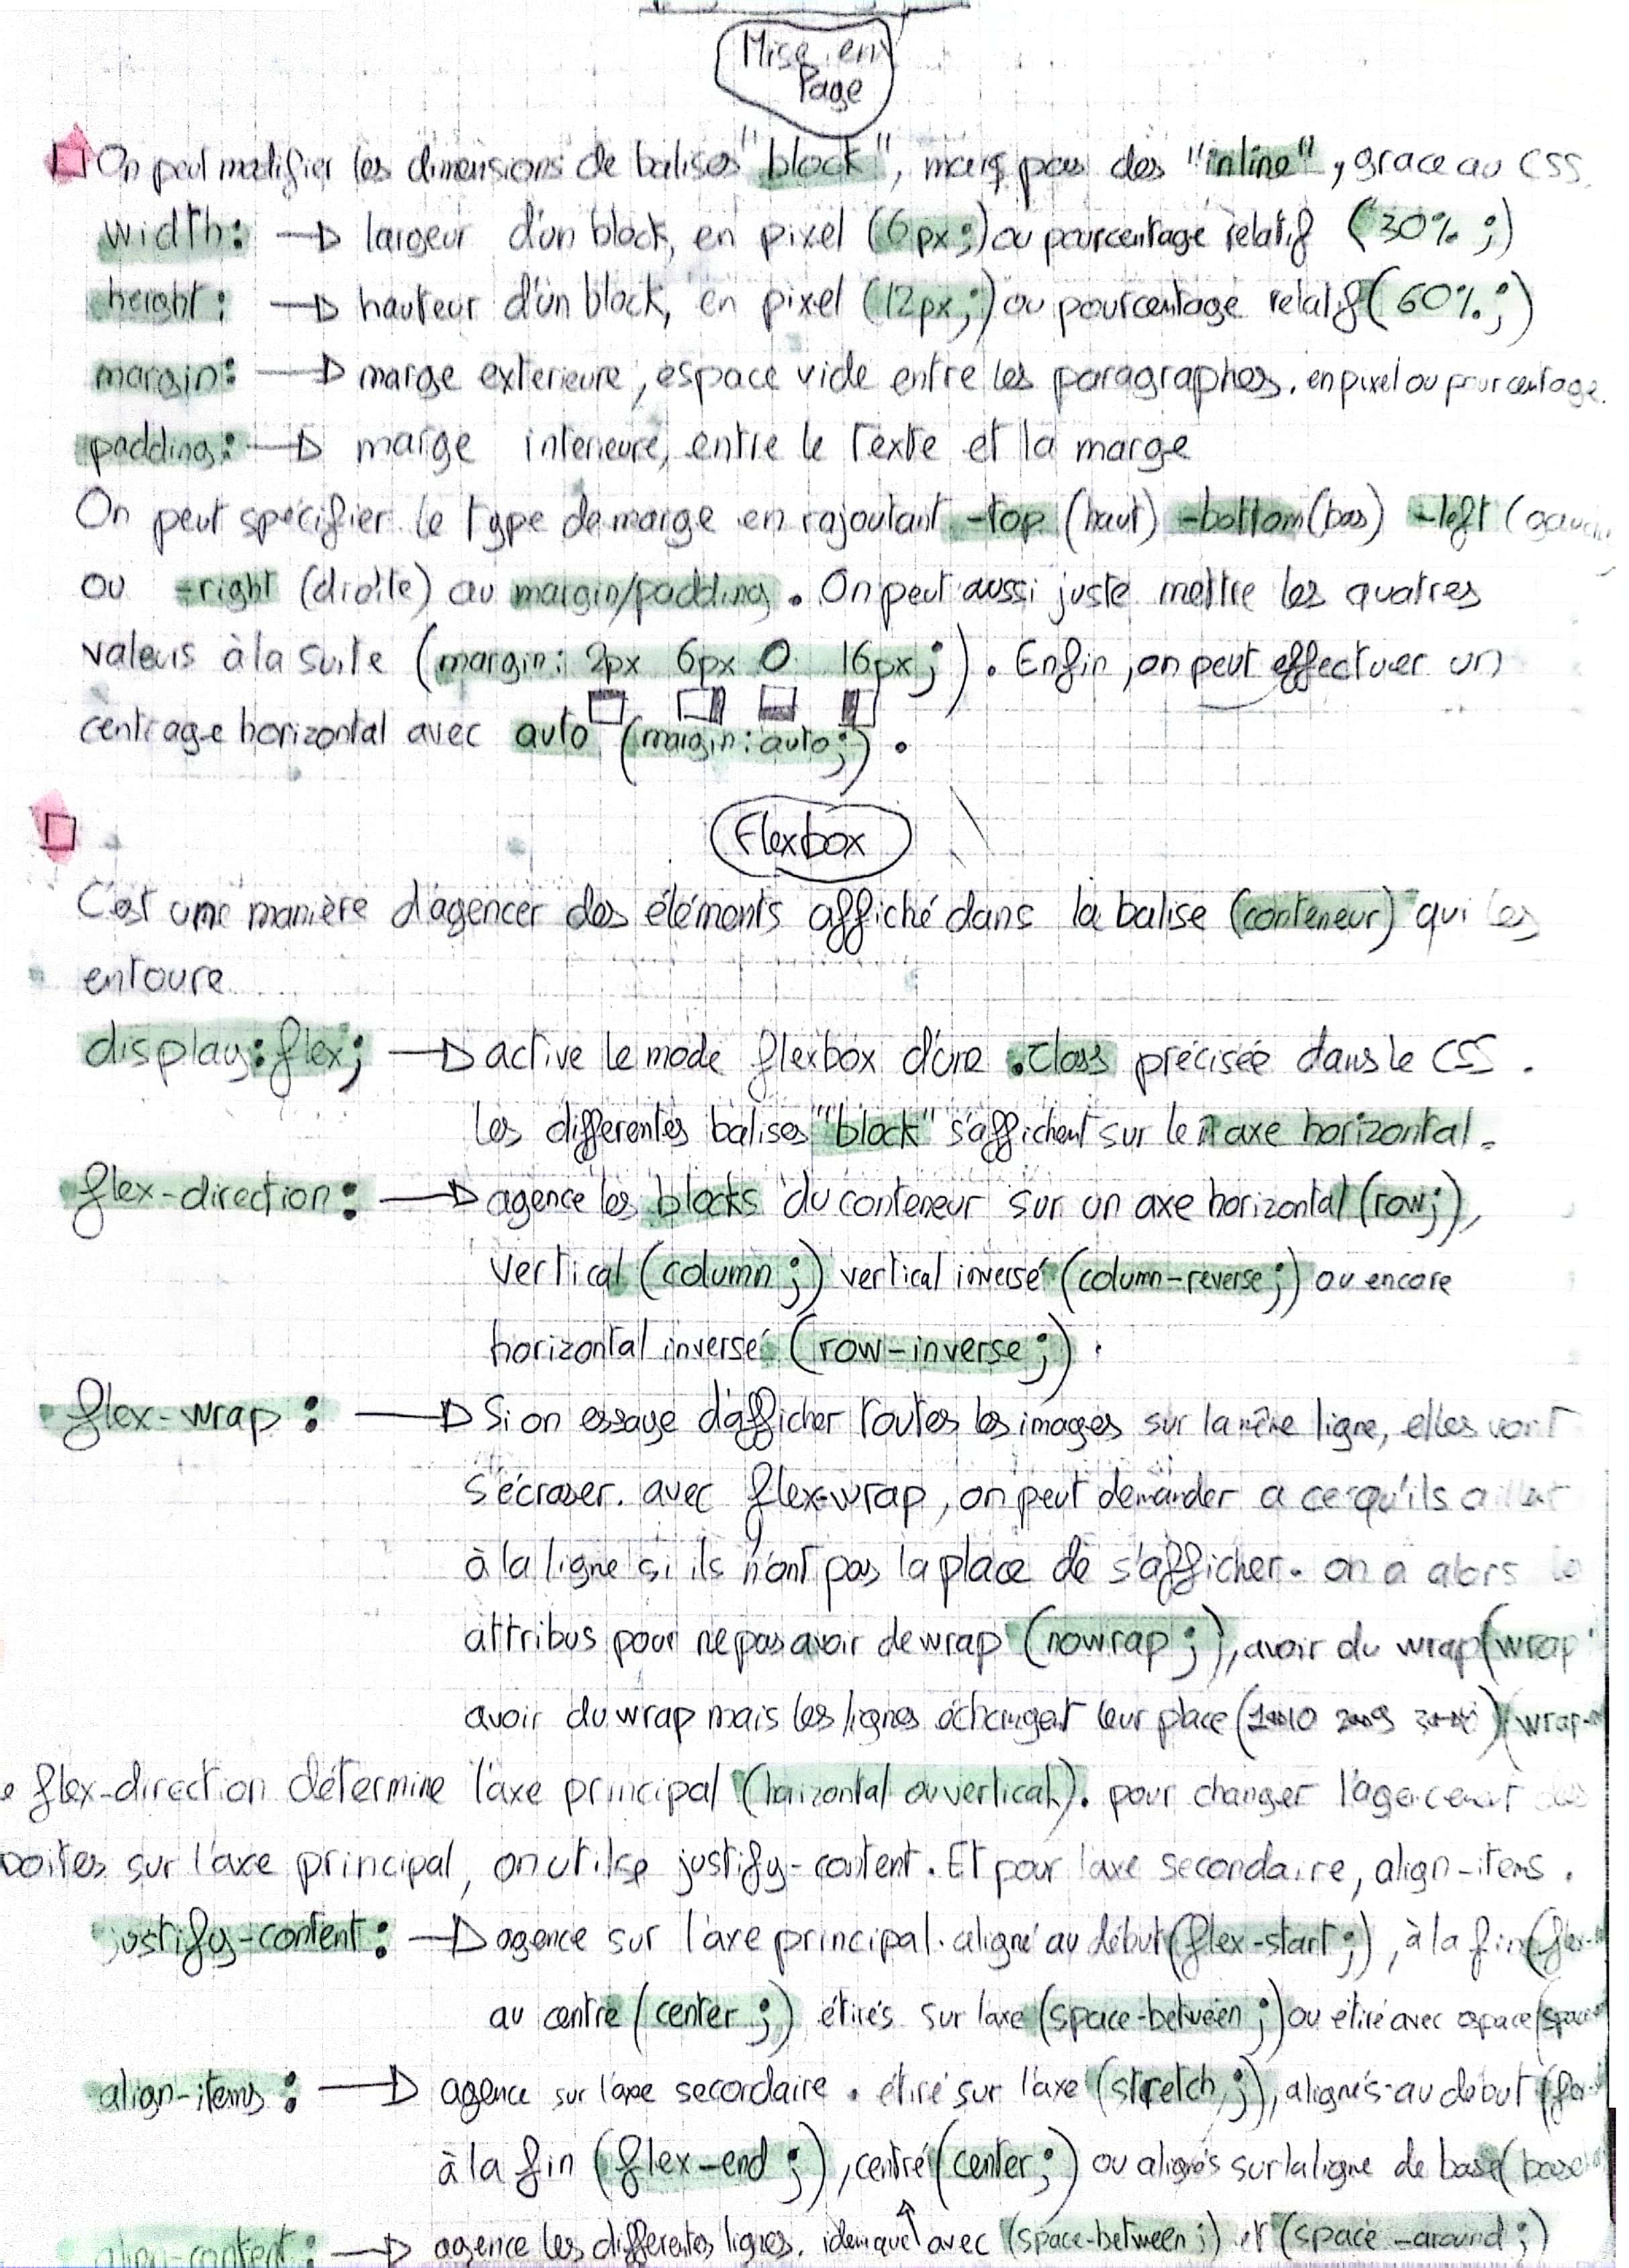 Mise en
Page
On peut modifier les dimensions de balises "block", mais pas des "inline", grace au CSS.
width: → largeur d'un block, en pixel (6px;) ou pourcentage relatif (30%;)
height: → hauteur d'un block, en pixel (12px;) ou pourcentage relatif (60%;)
margin: → marge exterieure, espace vide entre les paragraphes. en pixel ou pourcentage.
padding: → marge interieure, entre le texte et la marge
On peut spécifier le type de marge en rajoutant -top (haut) -bottom (bas) -left (gauch
ou -right (droite) au margin/padding. On peut aussi juste mettre les quatres
valeurs à la suite (margin: 2px 6px 0 16px;). Enfin, on peut effectuer un
centrage horizontal avec auto (margin: auto;).
Flexbox
C'est une manière d'agencer des éléments affiché dans la balise (conteneur) qui les
entoure
display: flex; → active le mode flexbox d'une .class précisée dans le CSS.
les differentes balises "block" s'affichent sur le axe horizontal.
flex-direction: → agence les blocks du conteneur sur un axe horizontal (row;),
vertical (column;) vertical inversé (column-reverse;) ou encore
horizontal inversé (row-inverse;).
flex-wrap: → Si on essaye d'afficher toutes les images sur la même ligne, elles vont
s'écraser. avec flex-wrap, on peut demander a ce qu'ils aillent
à la ligne si ils n'ont pas la place de s'afficher. on a alors le
attribus pour ne pas avoir de wrap (nowrap;), avoir du wrap (wrap
avoir du wrap mais les lignes échangent leur place (wrap-
flex-direction détermine l'axe principal (horizontal ou vertical). pour changer l'agencement des
boites sur l'axe principal, on utilise justify-content. Et pour l'axe secondaire, align-items.
justify-content: → agence sur l'axe principal. aligné au début (flex-start;), à la fin (flex-
au centre (center;) étirés sur l'axe (space-between;) ou étiré avec espace (space
align-items: → agence sur l'axe secondaire. étiré sur l'axe (stretch;), alignés au debut (flex-
à la fin (flex-end;), centré (center;) ou alignés sur la ligne de base (base
align-content: → agence les differentes lignes. idem que ↑ avec (space-between;) et (space-around;)